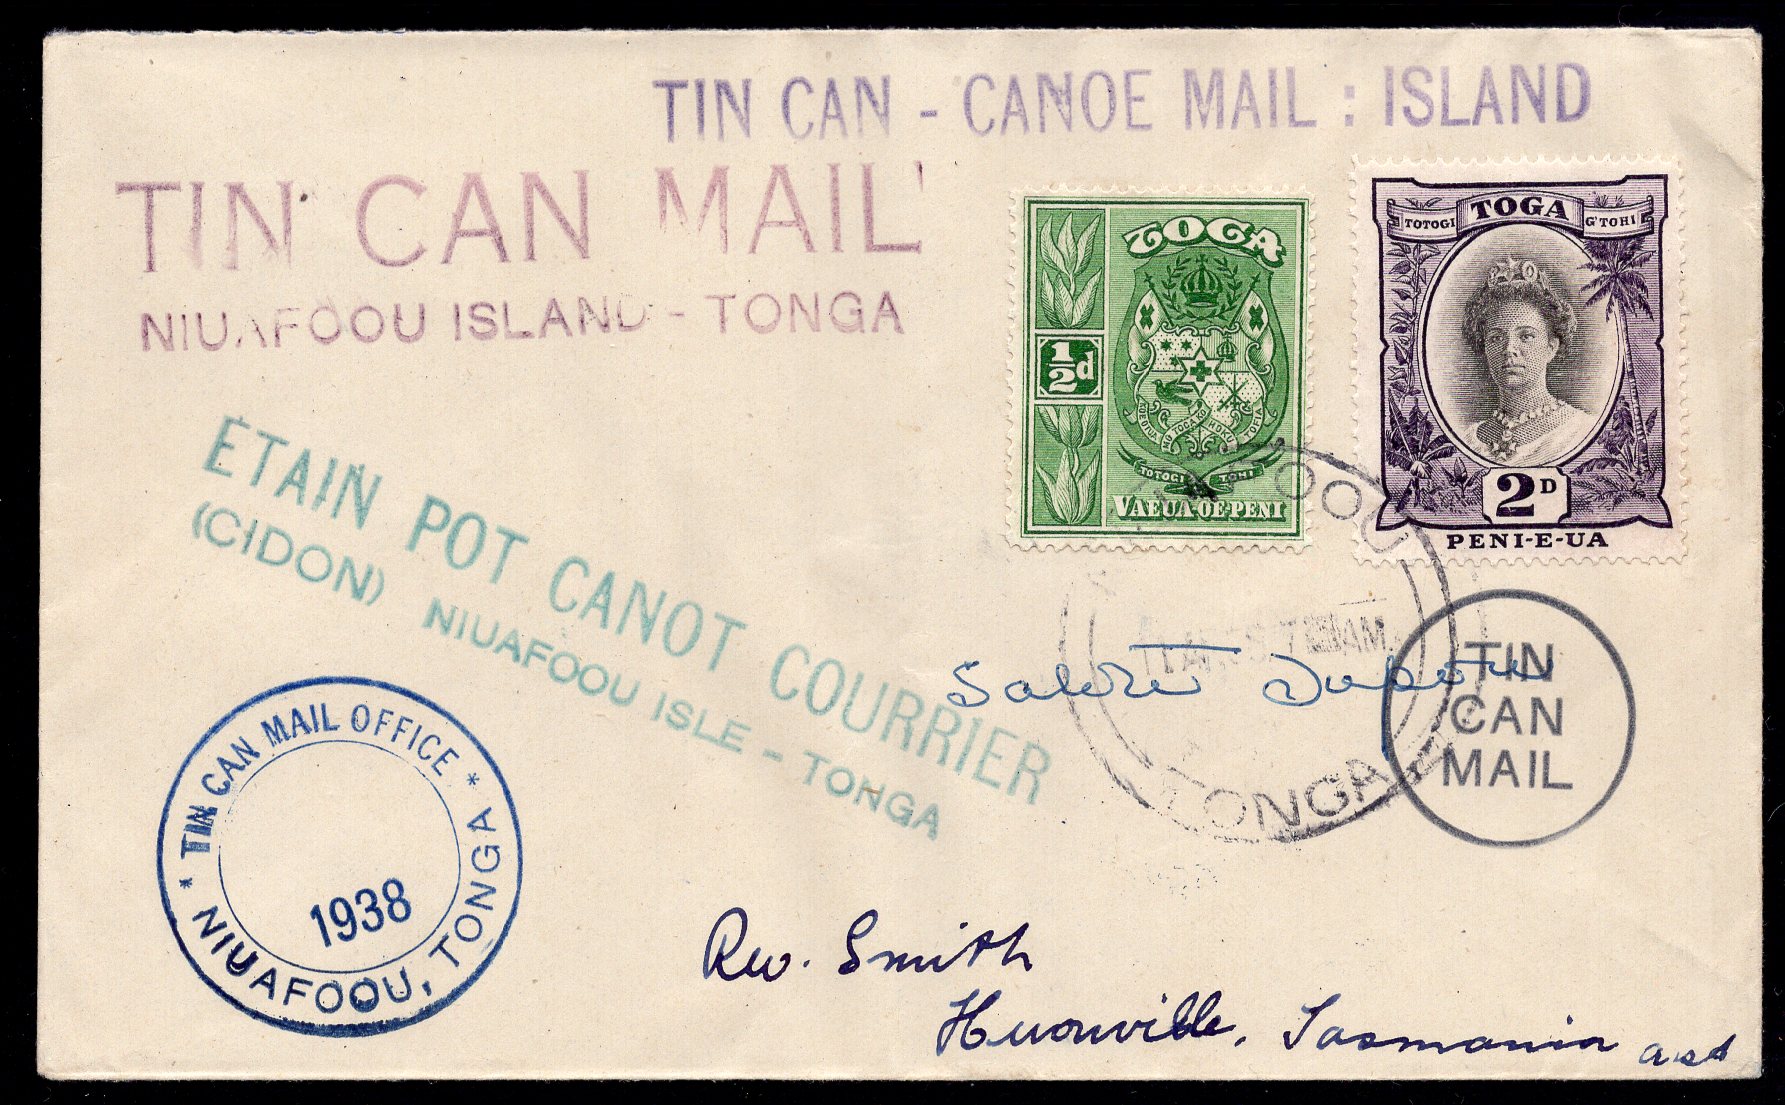 TIN CAN - CANOE MAIL : ISLAND
TIN CAN MAIL
NIUAFOOU ISLAND - TONGA
TOGA
½d
KOE OTUA MO TOGA KO HOKU TOFIA
TOTOGI TOHI
VAEUA-OE-PENI
TOTOGI TOGA G'TOHI
2D
PENI-E-UA
ETAIN POT CANOT COURRIER
(CIDON) NIUAFOOU ISLE - TONGA
NIUAFOOU
TONGA
TIN
CAN
MAIL
* TIN CAN MAIL OFFICE *
1938
NIUAFOOU, TONGA
Rev. Smith
Huonville, Tasmania